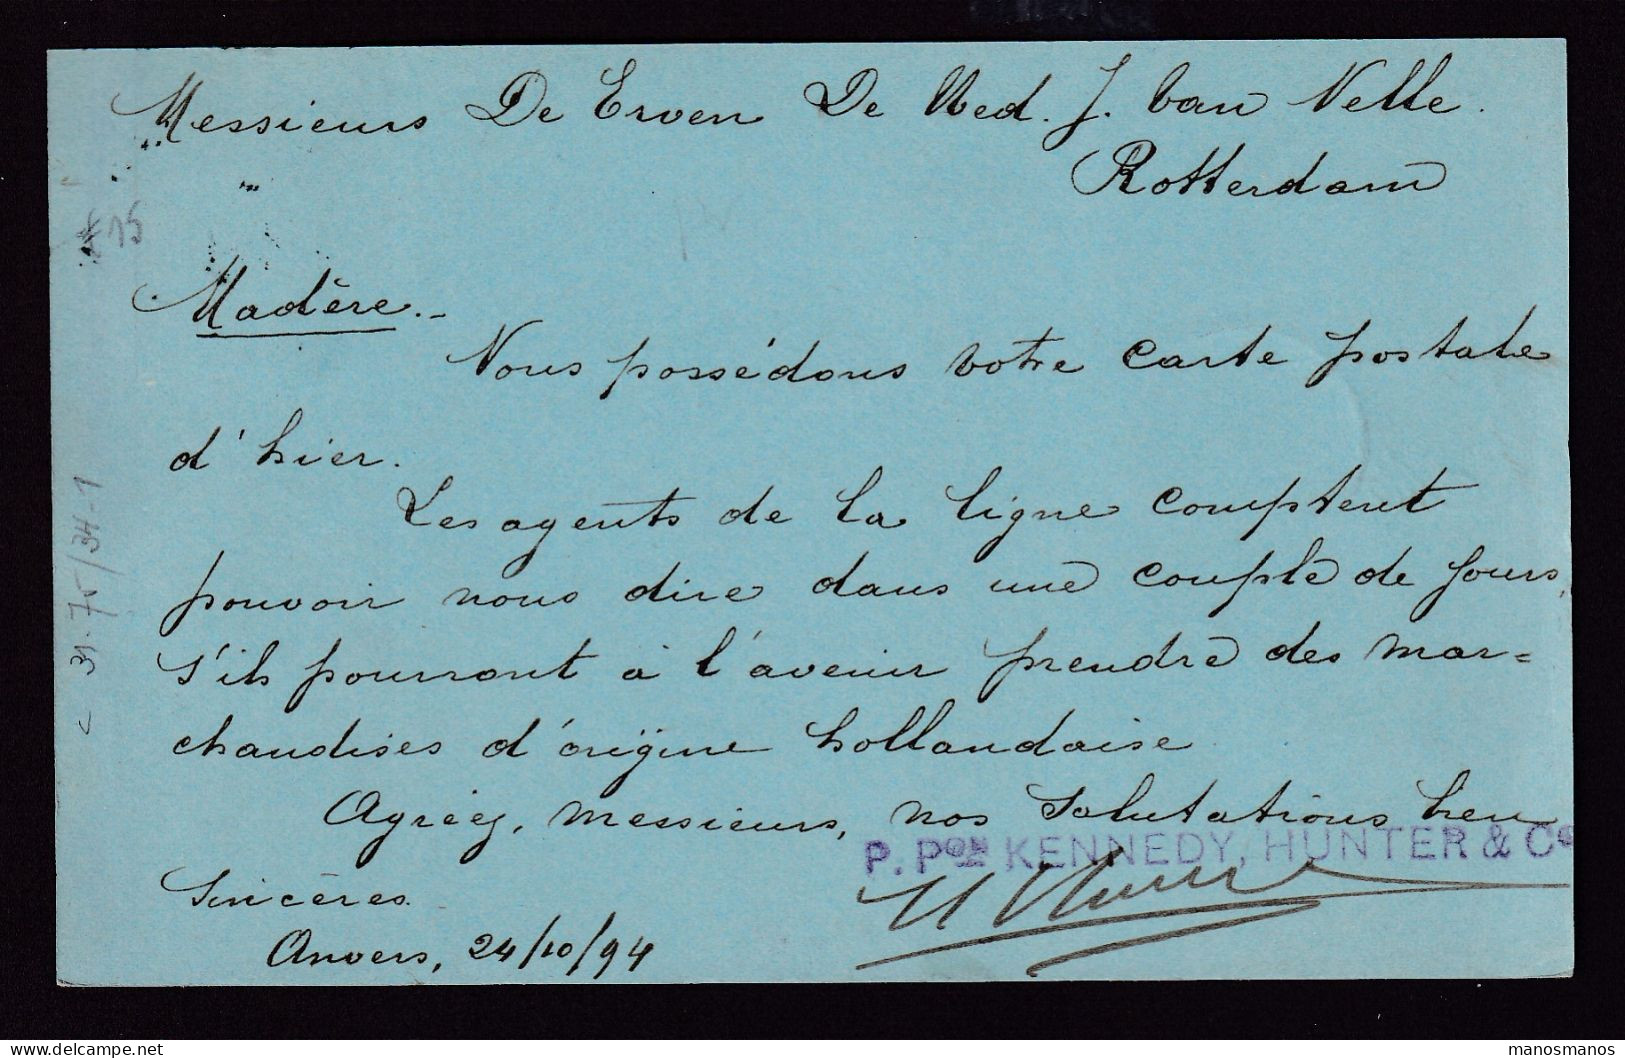 Messieurs De Erven De Wed. J. Van Nelle.
Rotterdam
# 15
Madère.-
Nous possédons votre carte postale
d'hier.
Les agents de la ligne comptent
pouvoir nous dire dans une couple de jours,
s'ils pourront à l'avenir prendre des mar=
chandises d'origine hollandaise
Agréez, messieurs, nos salutations bien
P. PON KENNEDY, HUNTER & Co
sincères.
Anvers, 24/10/94
manosmanos